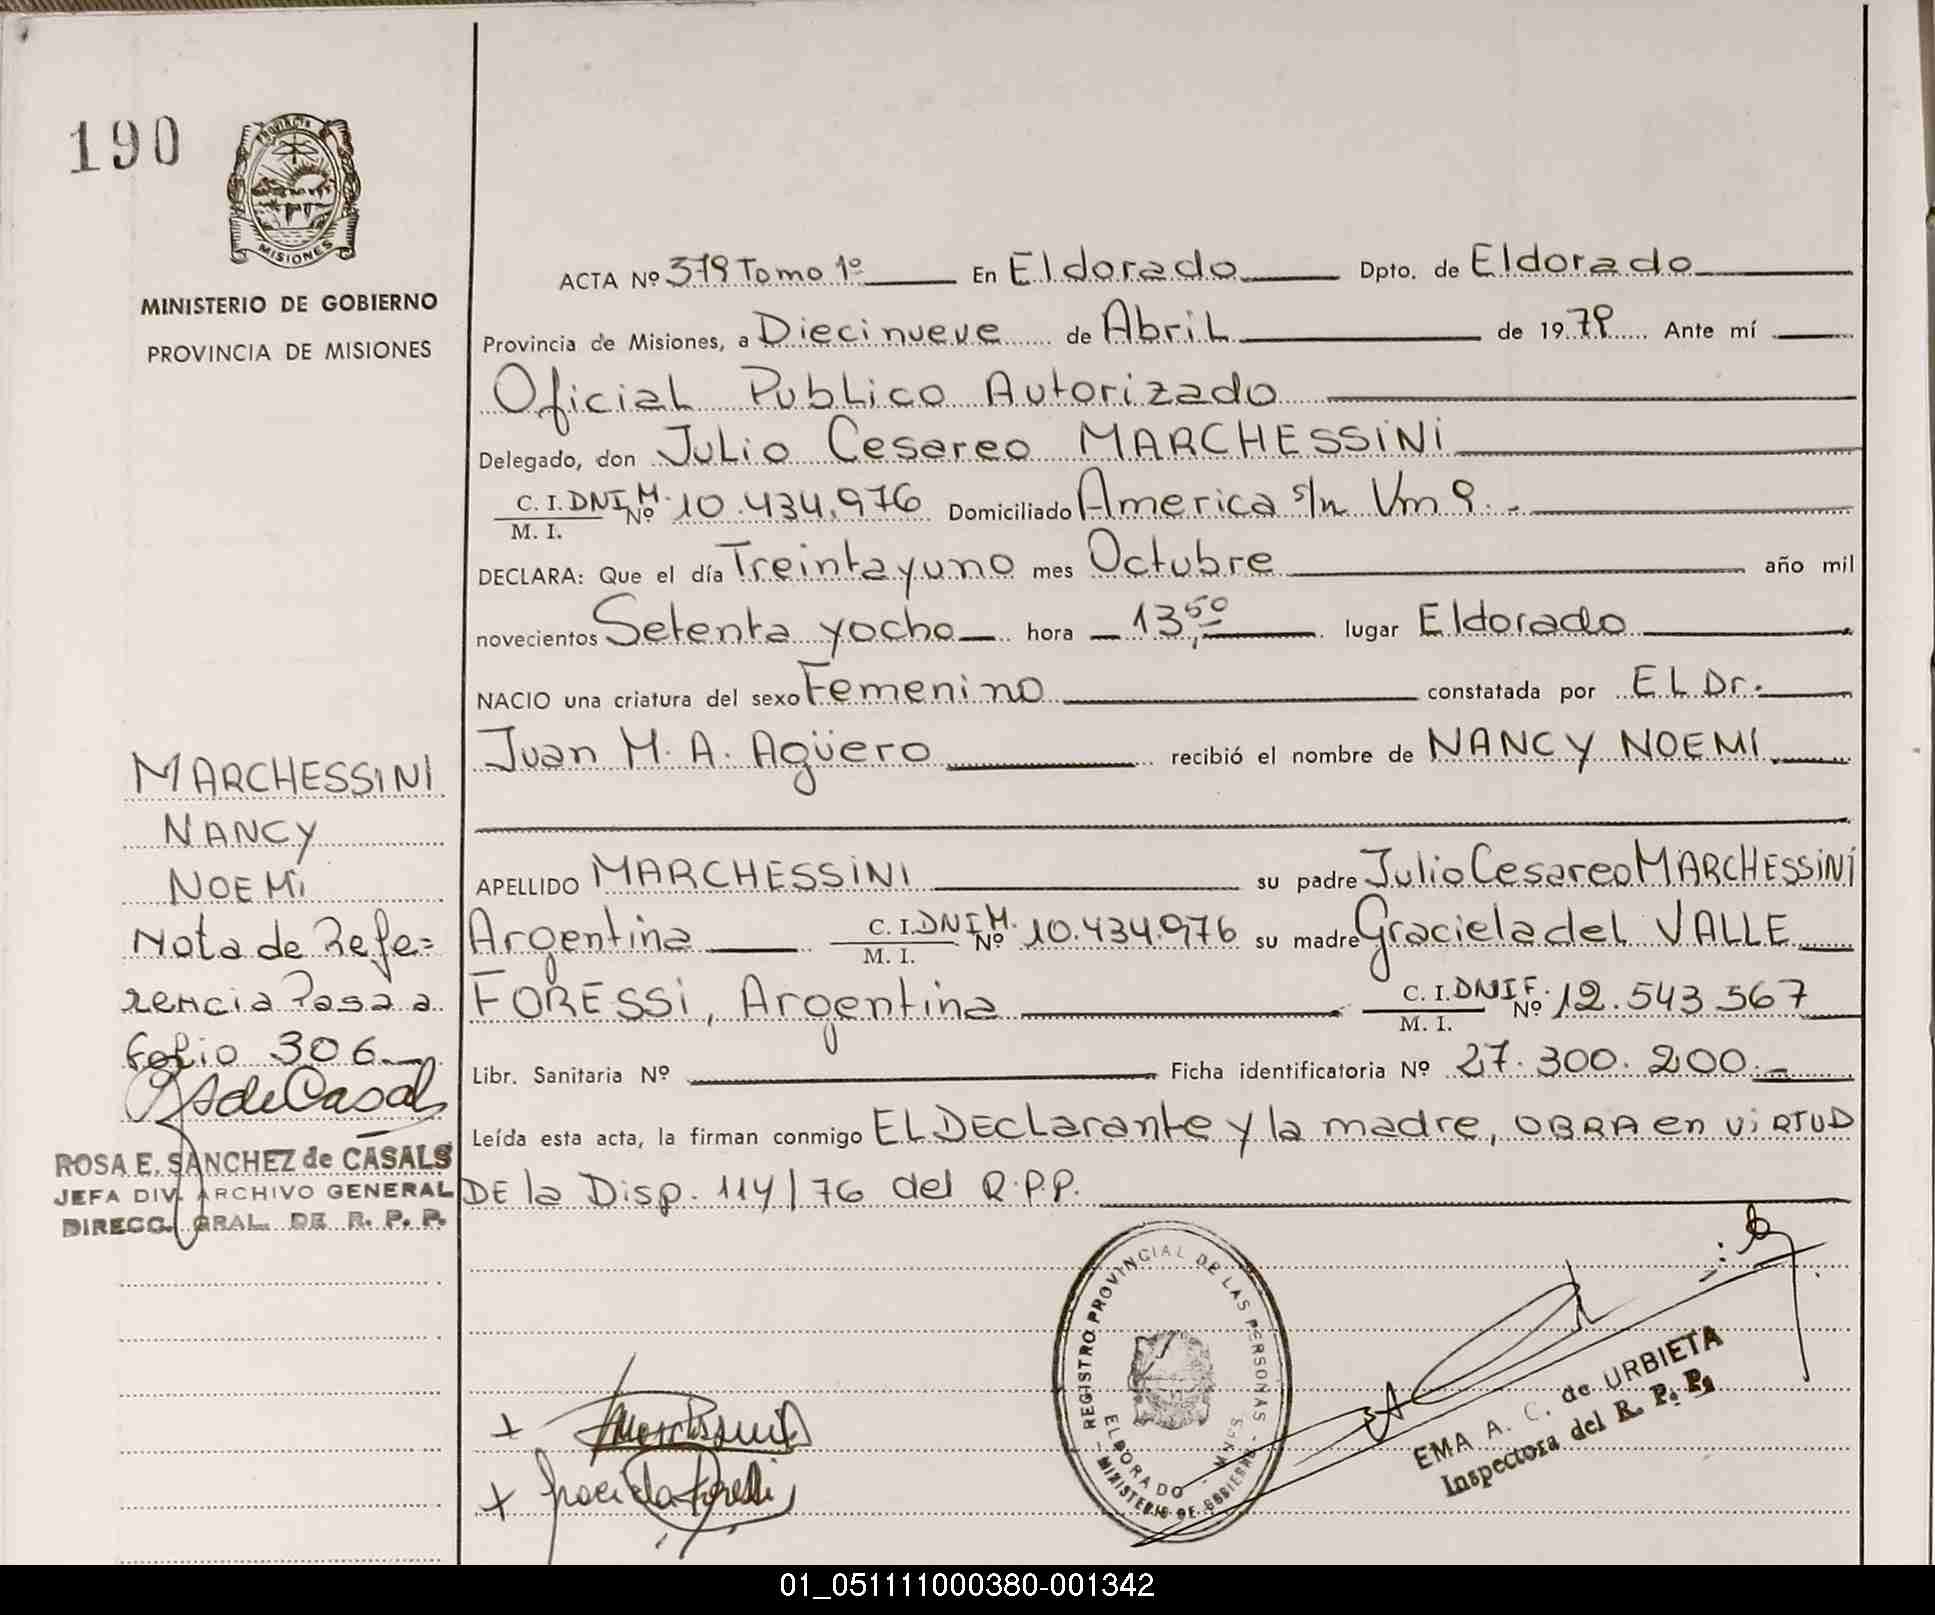 190
PROVINCIA
MISIONES
MINISTERIO DE GOBIERNO
PROVINCIA DE MISIONES
ACTA Nº 379 Tomo 1º En Eldorado Dpto. de Eldorado
Provincia de Misiones, a Diecinueve de Abril de 1979 Ante mí
Oficial Publico Autorizado
Delegado, don Julio Cesareo MARCHESSINI
C. I. DNI M. Nº 10.434.976 Domiciliado America s/n Km 9.-
M. I.
DECLARA: Que el día Treinta y uno mes Octubre año mil
novecientos Setenta y ocho hora 13,50 lugar Eldorado
NACIO una criatura del sexo Femenino constatada por EL Dr.
Juan M. A. Agüero recibió el nombre de NANCY NOEMI
APELLIDO MARCHESSINI su padre Julio Cesareo MARCHESSINI
Argentina C. I. DNI M. Nº 10.434.976 su madre Graciela del VALLE
M. I.
FORESSI, Argentina C. I. DNI F. Nº 12.543.567
M. I.
Libr. Sanitaria Nº Ficha identificatoria Nº 27.300.200.-
Leída esta acta, la firman conmigo EL DEClarante y la madre, OBRA en ViRTUD
DE la Disp. 114/76 del R.P.P.
MARCHESSINI
NANCY
NOEMI
Nota de Refe=
rencia Pasa a
folio 306
ROSA E. SANCHEZ de CASALS
JEFA DIV. ARCHIVO GENERAL
DIRECC. GRAL. DE R. P. P.
REGISTRO PROVINCIAL DE LAS PERSONAS
ELDORADO - MNES.
MINISTERIO DE GOBIERNO
EMA A. C. de URBIETA
Inspectora del R. P. P.
01_051111000380-001342